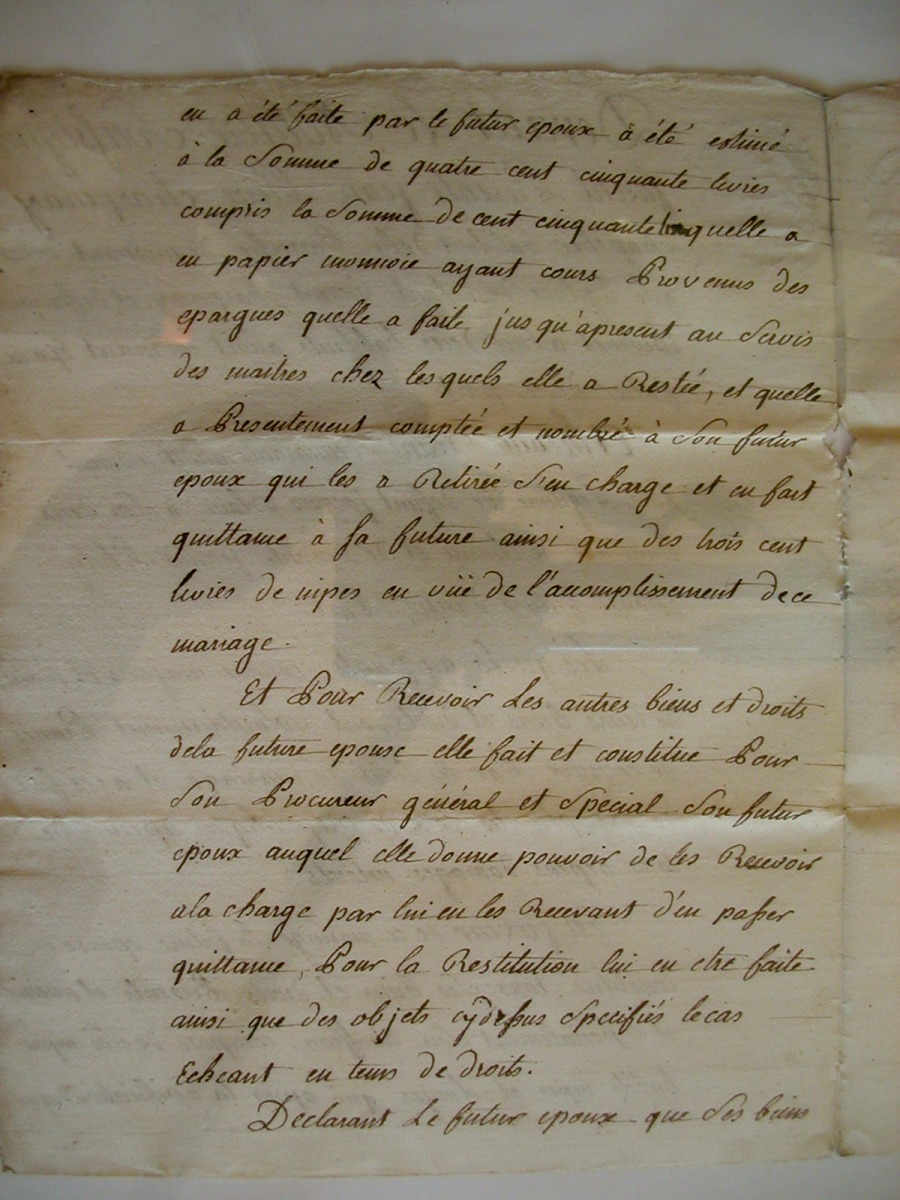 en a été faite par le futur epoux a été estimé
à la Somme de quatre cent cinquante livres
compris la Somme de cent cinquante quelle a
en papier monnoie ayant cours Provenus des
epargnes quelle a faite jusqu'apresent au Servis
des maitres chez lesquels elle a Restée, et quelle
a Presentement comptée et nombré à Son futur
epoux qui les a Retirée S'en charge et en fait
quittance à sa future ainsi que des trois cent
livres de nipes en vüe de l'acomplissement de ce
mariage.
Et Pour Recevoir Les autres biens et droits
dela future epouse elle fait et constitue Pour
Son Procureur général et Special Son futur
epoux auquel elle donne pouvoir de les Recevoir
ala charge par lui en les Recevant d'en passer
quittance, Pour la Restitution lui en etre faite
ainsi que des objets cydessus Specifiés le cas
Echeant en tems de droits.
Declarant Le futur epoux que Ses biens